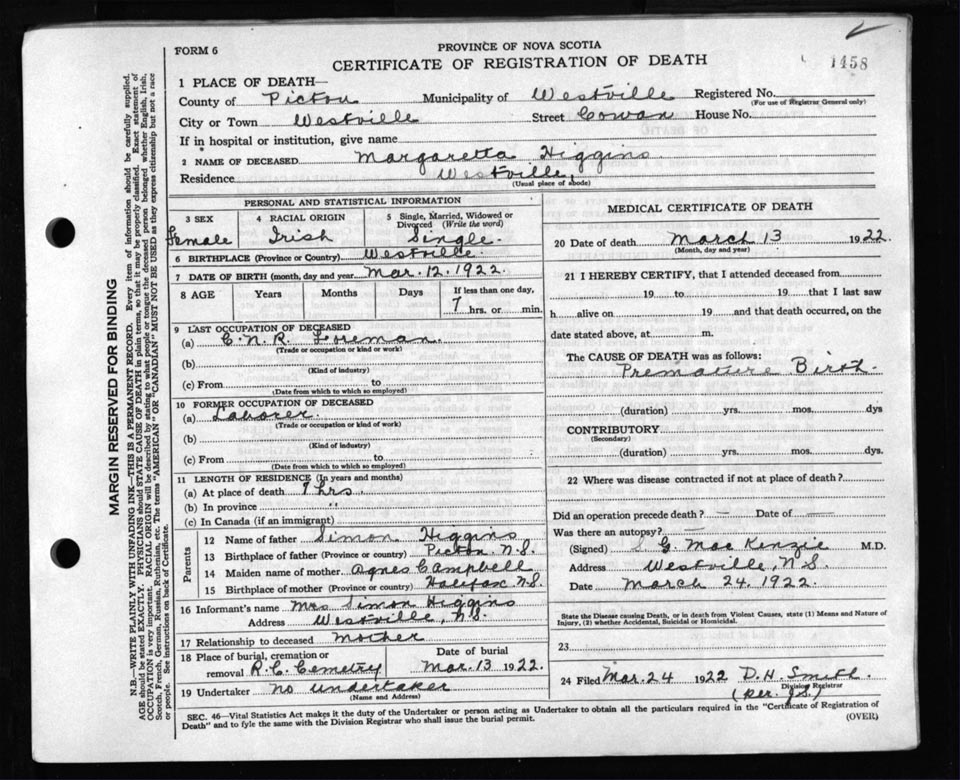 FORM 6
PROVINCE OF NOVA SCOTIA
CERTIFICATE OF REGISTRATION OF DEATH
1458
1 PLACE OF DEATH—
County of Pictou Municipality of Westville Registered No.
(For use of Registrar General only)
City or Town Westville Street Cowan House No.
If in hospital or institution, give name
2 NAME OF DECEASED Margaretta Higgins.
Residence Westville,
(Usual place of abode)
PERSONAL AND STATISTICAL INFORMATION
3 SEX 4 RACIAL ORIGIN 5 Single, Married, Widowed or Divorced (Write the word)
Female Irish Single.
6 BIRTHPLACE (Province or Country) Westville.
7 DATE OF BIRTH (month, day and year) Mar. 12. 1922.
8 AGE Years Months Days If less than one day,
7 hrs. or min.
9 LAST OCCUPATION OF DECEASED
(a) C.N.R. Foreman.
(Trade or occupation or kind or work)
(b)
(Kind of industry)
(c) From to
(Date from which to which so employed)
10 FORMER OCCUPATION OF DECEASED
(a) Laborer.
(Trade or occupation or kind of work)
(b)
(Kind of industry)
(c) From to
(Date from which to which so employed)
11 LENGTH OF RESIDENCE (In years and months)
(a) At place of death 7 hrs.
(b) In province "
(c) In Canada (if an immigrant)
Parents
12 Name of father Simon Higgins
13 Birthplace of father (Province or country) Pictou N.S.
14 Maiden name of mother Agnes Campbell
15 Birthplace of mother (Province or country) Halifax N.S.
16 Informant's name Mrs Simon Higgins
Address Westville, N.S.
17 Relationship to deceased Mother
18 Place of burial, cremation or removal R.C. Cemetry Date of burial Mar. 13 1922.
19 Undertaker No undertaker
(Name and Address)
MEDICAL CERTIFICATE OF DEATH
20 Date of death March 13 1922.
(Month, day and year)
21 I HEREBY CERTIFY, that I attended deceased from
19 to 19 that I last saw
h alive on 19 and that death occurred, on the
date stated above, at m.
The CAUSE OF DEATH was as follows:
Premature Birth.
(duration) yrs. mos. dys
CONTRIBUTORY
(Secondary)
(duration) yrs. mos. dys.
22 Where was disease contracted if not at place of death?
Did an operation precede death? — Date of —
Was there an autopsy? —
(Signed) S G. Mac Kenzie M.D.
Address Westville, N.S.
Date March 24. 1922.
State the Disease causing Death, or in death from Violent Causes, state (1) Means and Nature of
Injury, (2) whether Accidental, Suicidal or Homicidal.
23
24 Filed Mar. 24 1922 D.H. Smith
Division Registrar
(per J.S.)
SEC. 46—Vital Statistics Act makes it the duty of the Undertaker or person acting as Undertaker to obtain all the particulars required in the "Certificate of Registration of
Death" and to fyle the same with the Division Registrar who shall issue the burial permit.
(OVER)
MARGIN RESERVED FOR BINDING
N.B.—WRITE PLAINLY WITH UNFADING INK—THIS IS A PERMANENT RECORD. Every item of information should be carefully supplied.
AGE should be stated EXACTLY. PHYSICIANS should STATE CAUSE OF DEATH in plain terms, so that it may be properly classified. Exact statement of
OCCUPATION is very important. RACIAL ORIGIN will be described by stating to what people or tongue the deceased person belonged whether English, Irish,
Scotch, French, German, Russian, Ruthenian, etc. The terms "AMERICAN" OR "CANADIAN" MUST NOT BE USED as they express citizenship but not a race
or people. See instructions on back of Certificate.